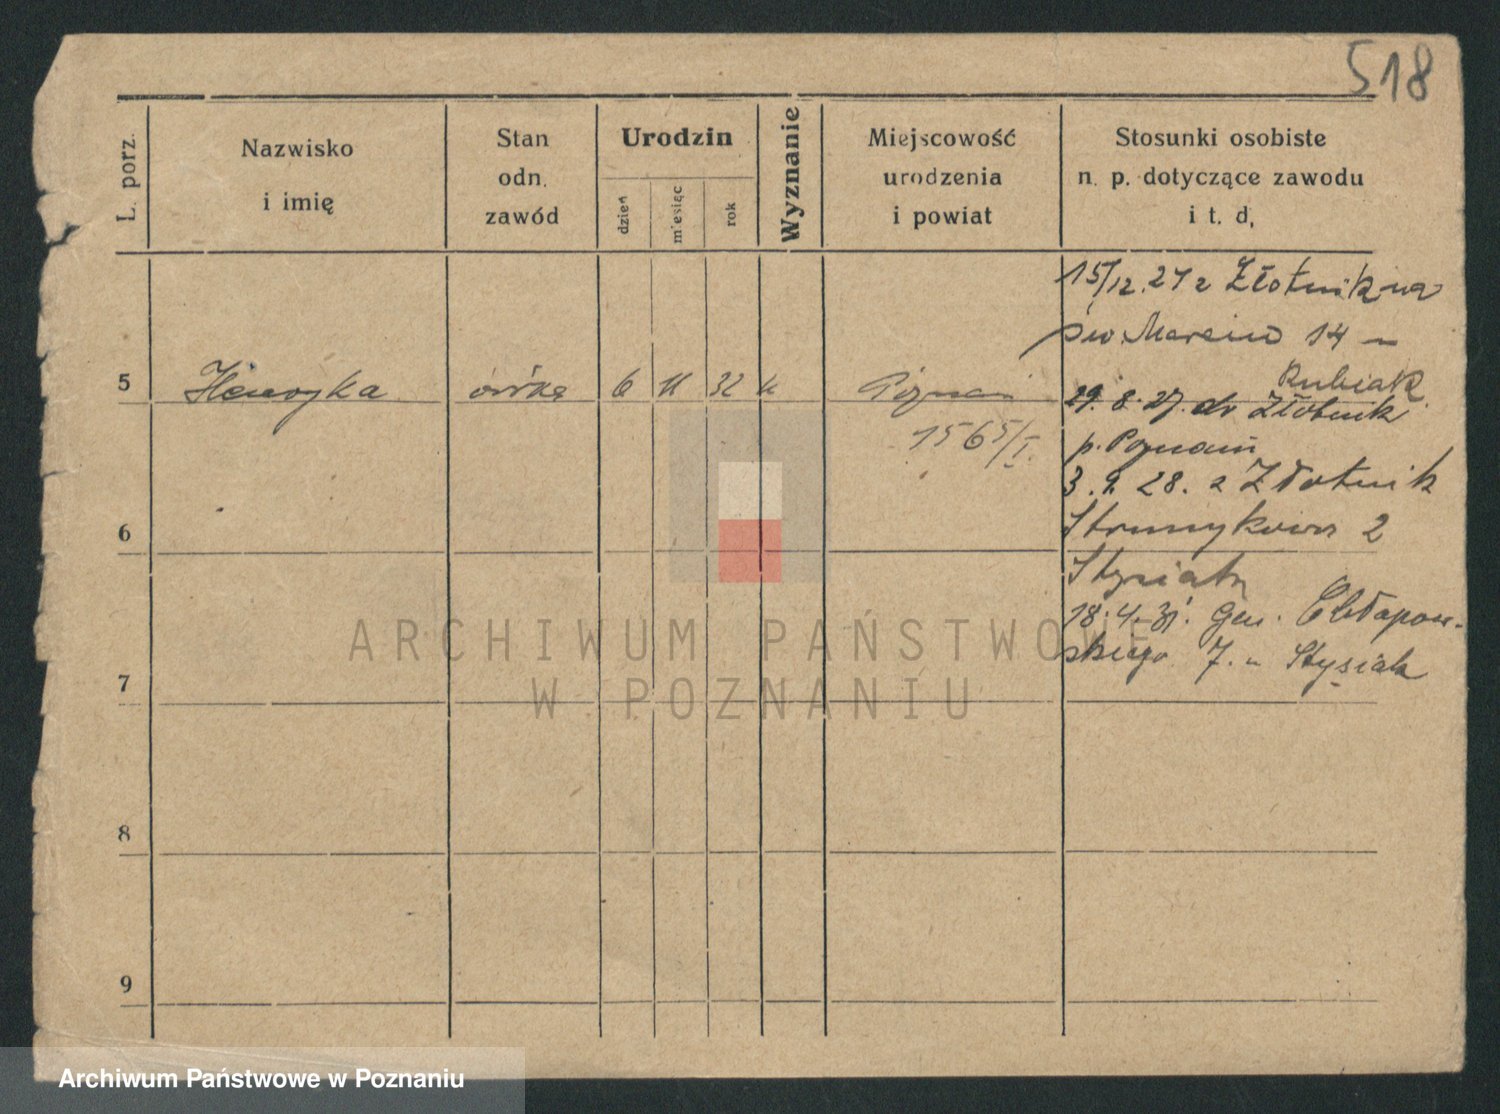 518
L. porz.
Nazwisko
i imię
Stan
odn.
zawód
Urodzin
dzień
miesiąc
rok
Wyznanie
Miejscowość
urodzenia
i powiat
Stosunki osobiste
n. p. dotyczące zawodu
i t. d,
15/12.27 z Złotnik na
św. Marcin 14
Rubiak
5 Henryka córka 6 11 32 k Poznań
29. 8. 27. do Złotnik
1565/I.
p. Poznań
3. 9. 28. z Złotnik
6
Strumykowa 2
Stysiak
18. 4. 31. Gen. Chłapow-
skiego 7. u Stysiak
7
8
9
ARCHIWUM PAŃSTWOWE
W POZNANIU
Archiwum Państwowe w Poznaniu